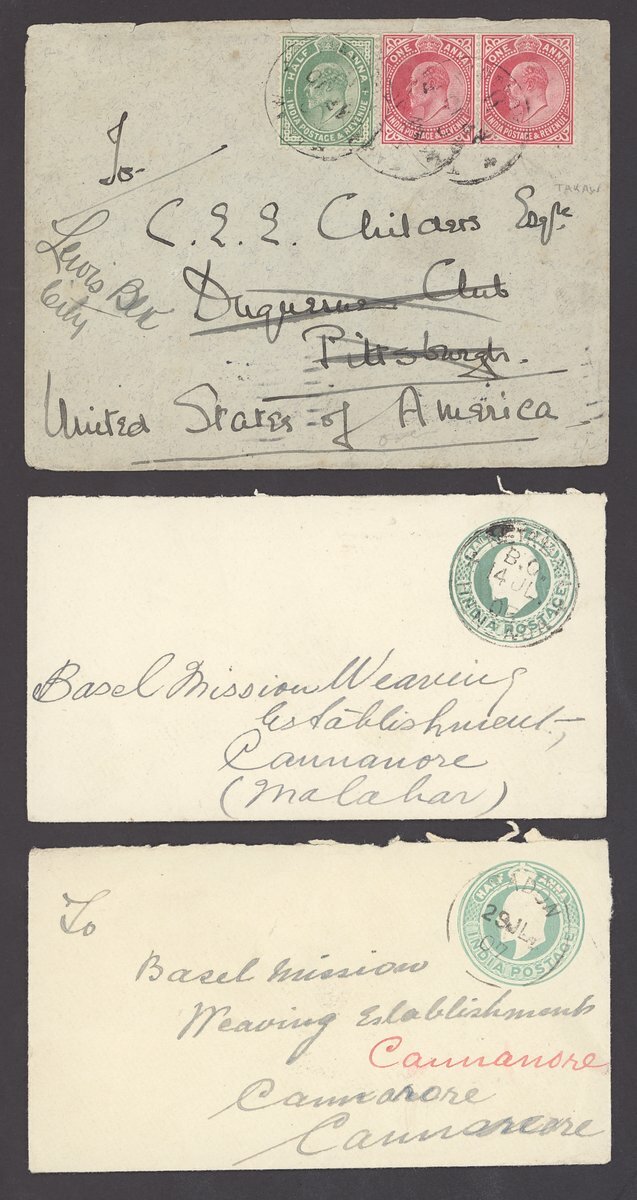 HALF ANNA
INDIA POSTAGE & REVENUE
ONE ANNA
INDIA POSTAGE & REVENUE
ONE ANNA
INDIA POSTAGE & REVENUE
To-
TAKAW
C. E. E. Childers Esqre
Lewis Blk
City
Duquesne Club
Pittsburgh.
United States of America
B.O.
14 JL
INDIA POSTAGE
Basel Mission Weaving
Establishment,
Cannanore
(Malabar)
HALF ANNA
29 JL
07
INDIA POSTAGE
To
Basel Mission
Weaving Establishment
Cannanore
Cannanore
Cannanore